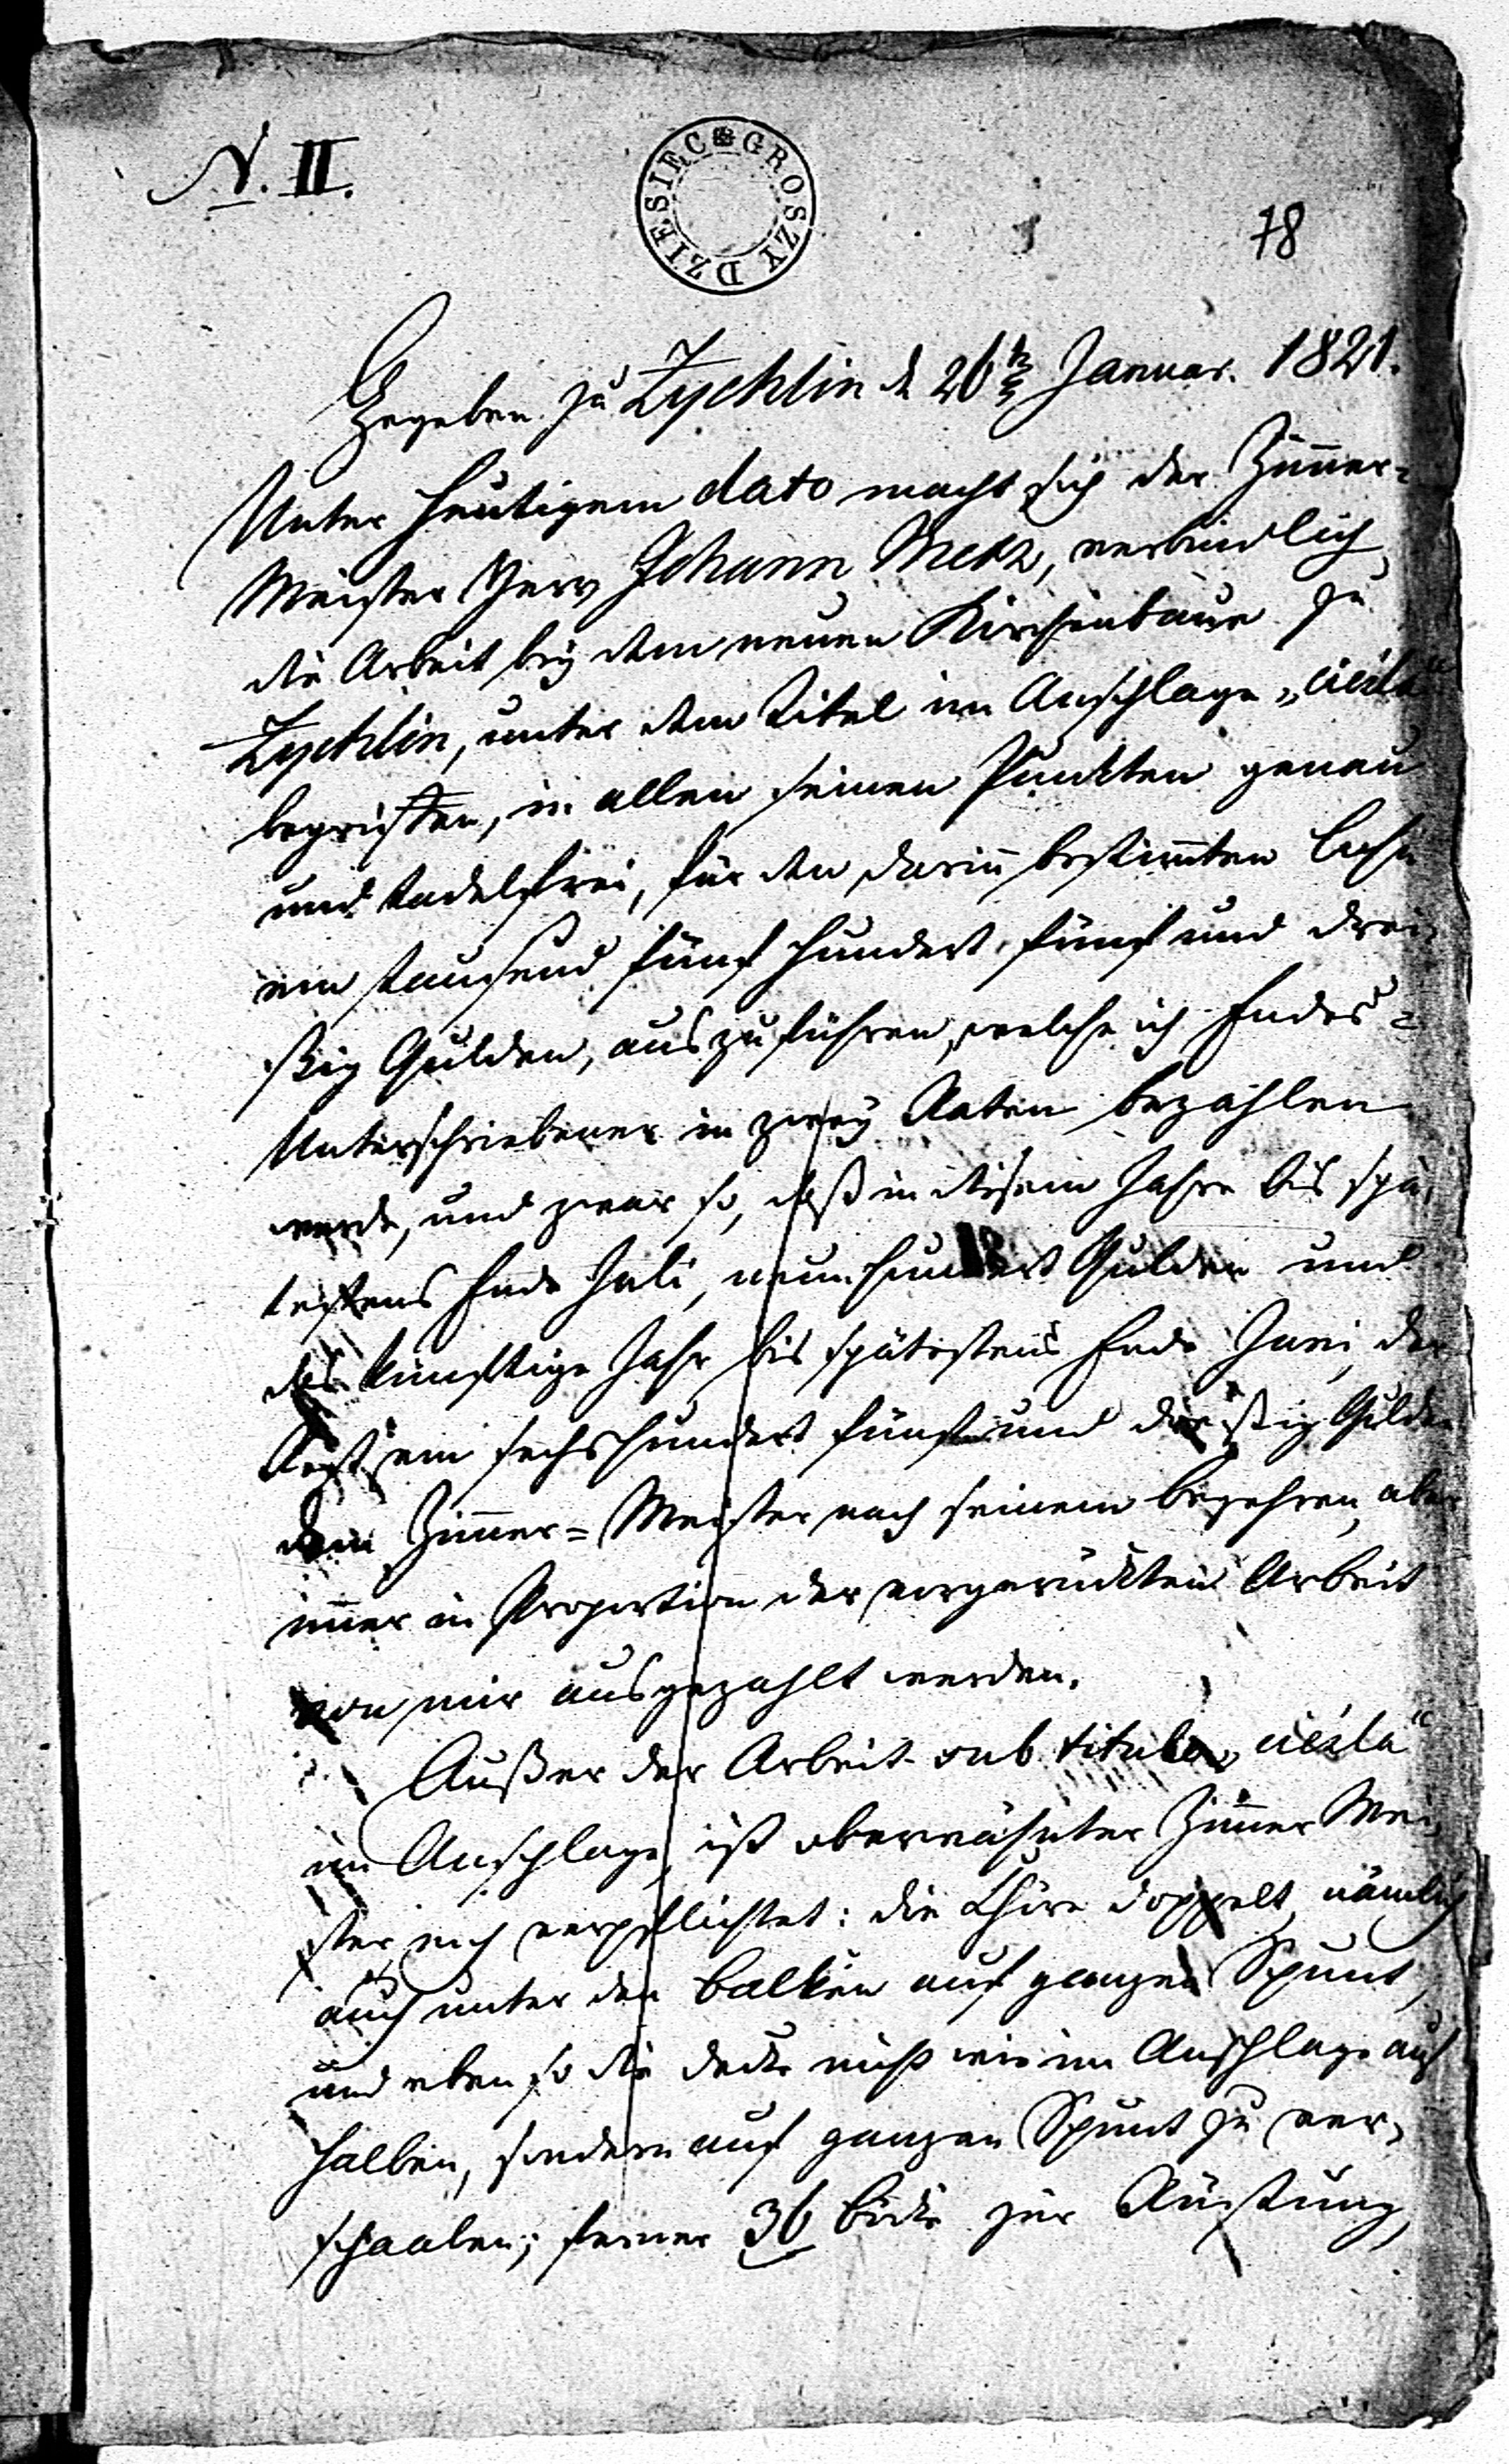 N. II.
DZIESIEC GROSZY
78
Gegeben zu Zychlin d 26ten Januar. 1821.
Unter heutigem dato macht sich der Zim̅er-
Meister Herr Johann Metz, verbindlich,
die Arbeit bey dem neuen Kirchenbaue zu
Zychlin, unter dem Titel im Anschlage „cieśla“
begriffen, in allen seinen Punkten genau
und tadelfrei, für den darin̅ bestim̅ten Lohn
ein tausend fünf hundert fünf und drei-
ßig Gulden, auszuführen, welche ich Endes-
Unterschriebener in zwey Raten bezahlen
werde, und zwar so, daß in diesem Jahre bis spä-
testens Ende Juli, neun hundert Gulden und
das künftige Jahr bis spätestens Ende Juni, der
Rest, ein sechshundert fünf und dreißig Gulden
dem Zim̅er-Meister nach seinem begehren, aber
im̅er in Proportion der vorgerückten Arbeit
von mir ausgezahlt werden.
Außer der Arbeit sub titulo „cieśla“
im Anschlage, ist oberwähnter Zim̅er Mei-
ster noch verpflichtet: die Chöre doppelt, nämlich
auch unter den balken auf ganzen Spunt,
und eben so die decke nicht wie im Anschlage auf
halben, sondern auf ganzen Spunt zu ver-
schaalen; ferner 36 böcke zur Rüstung,